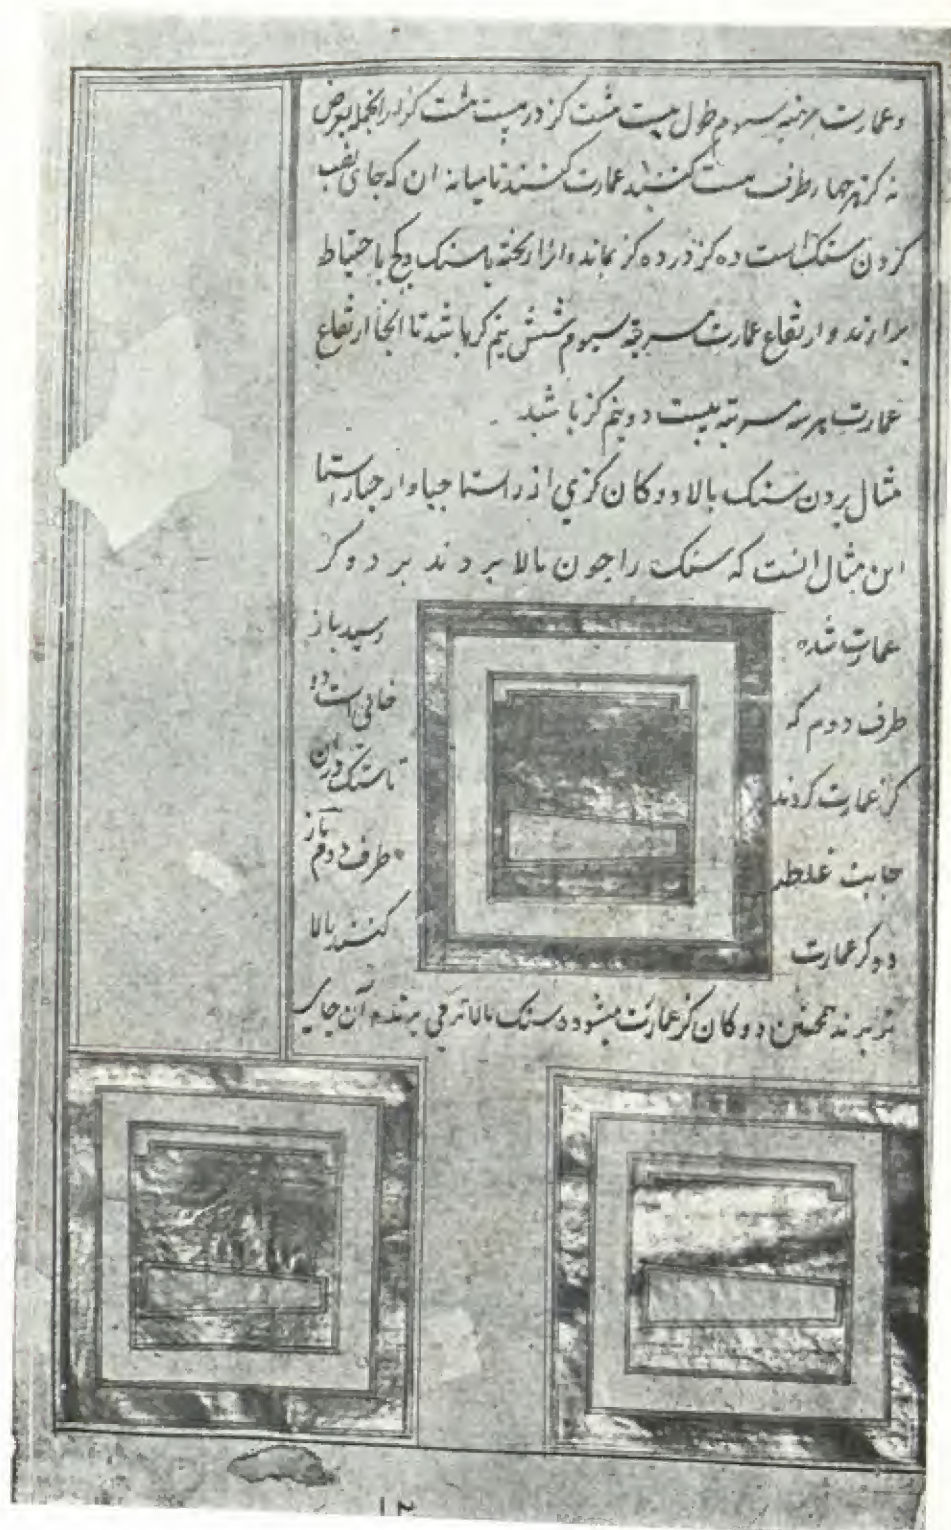 و عمارت مرتبه سیوم طول بیست هشت کز در بیست هشت کز ازانجمله بعرض
نه کز بهر چهار طرف هست کنند عمارت کنند تا میانه ان که جای نصب
کردن سنک است ده کز در ده کز بماند و انرا ریخته با سنک و کج باحتیاط
برارند و ارتفاع عمارت مرتبه سیوم شش نیم کز باشد تا انجا ارتفاع
عمارت هر سه مرتبه بیست دو نیم کز باشد
مثال بردن سنک بالا دوکان کزی از راستا چپا و از چپا راستا
این مثال انست که سنک را چون بالا بردند بر دو کز
عمارت شده رسید باز
طرف دوم که خالی است دو
کز عمارت کردند تا سنک دران
جانب غلطد طرف دوم باز
دو کز عمارت کنند بالا
تر برند همچنین دوکان کز عمارت میشود و سنک بالا ترقی برند آن جای
۱۲